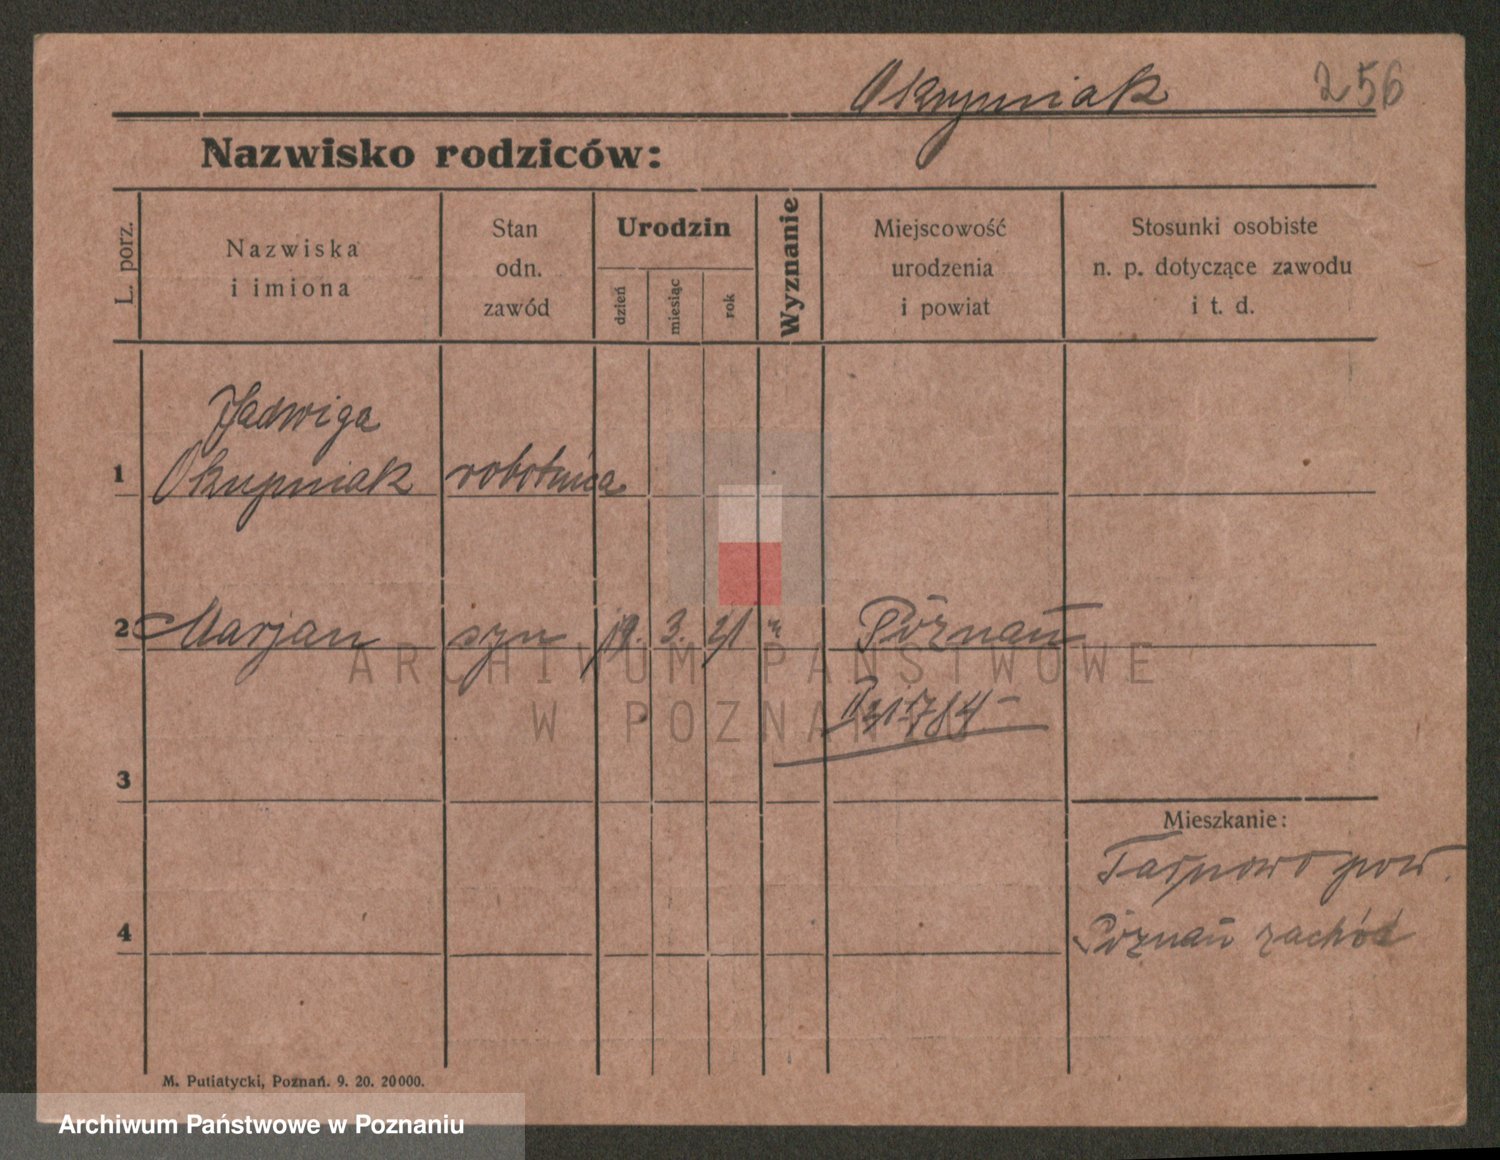 Okupniak 256
Nazwisko rodziców:
L. porz.
Nazwiska
i imiona
Stan
odn.
zawód
Urodzin
dzień
miesiąc
rok
Wyznanie
Miejscowość
urodzenia
i powiat
Stosunki osobiste
n. p. dotyczące zawodu
i t. d.
Jadwiga
1 Okupniak robotnica
2 Marjan syn 19. 3. 21 Poznań
3
Mieszkanie:
Tarnowo pow.
4 Poznań zachód
M. Putiatycki, Poznań. 9. 20. 20000.
ARCHIWUM PAŃSTWOWE
W POZNANIU
Archiwum Państwowe w Poznaniu